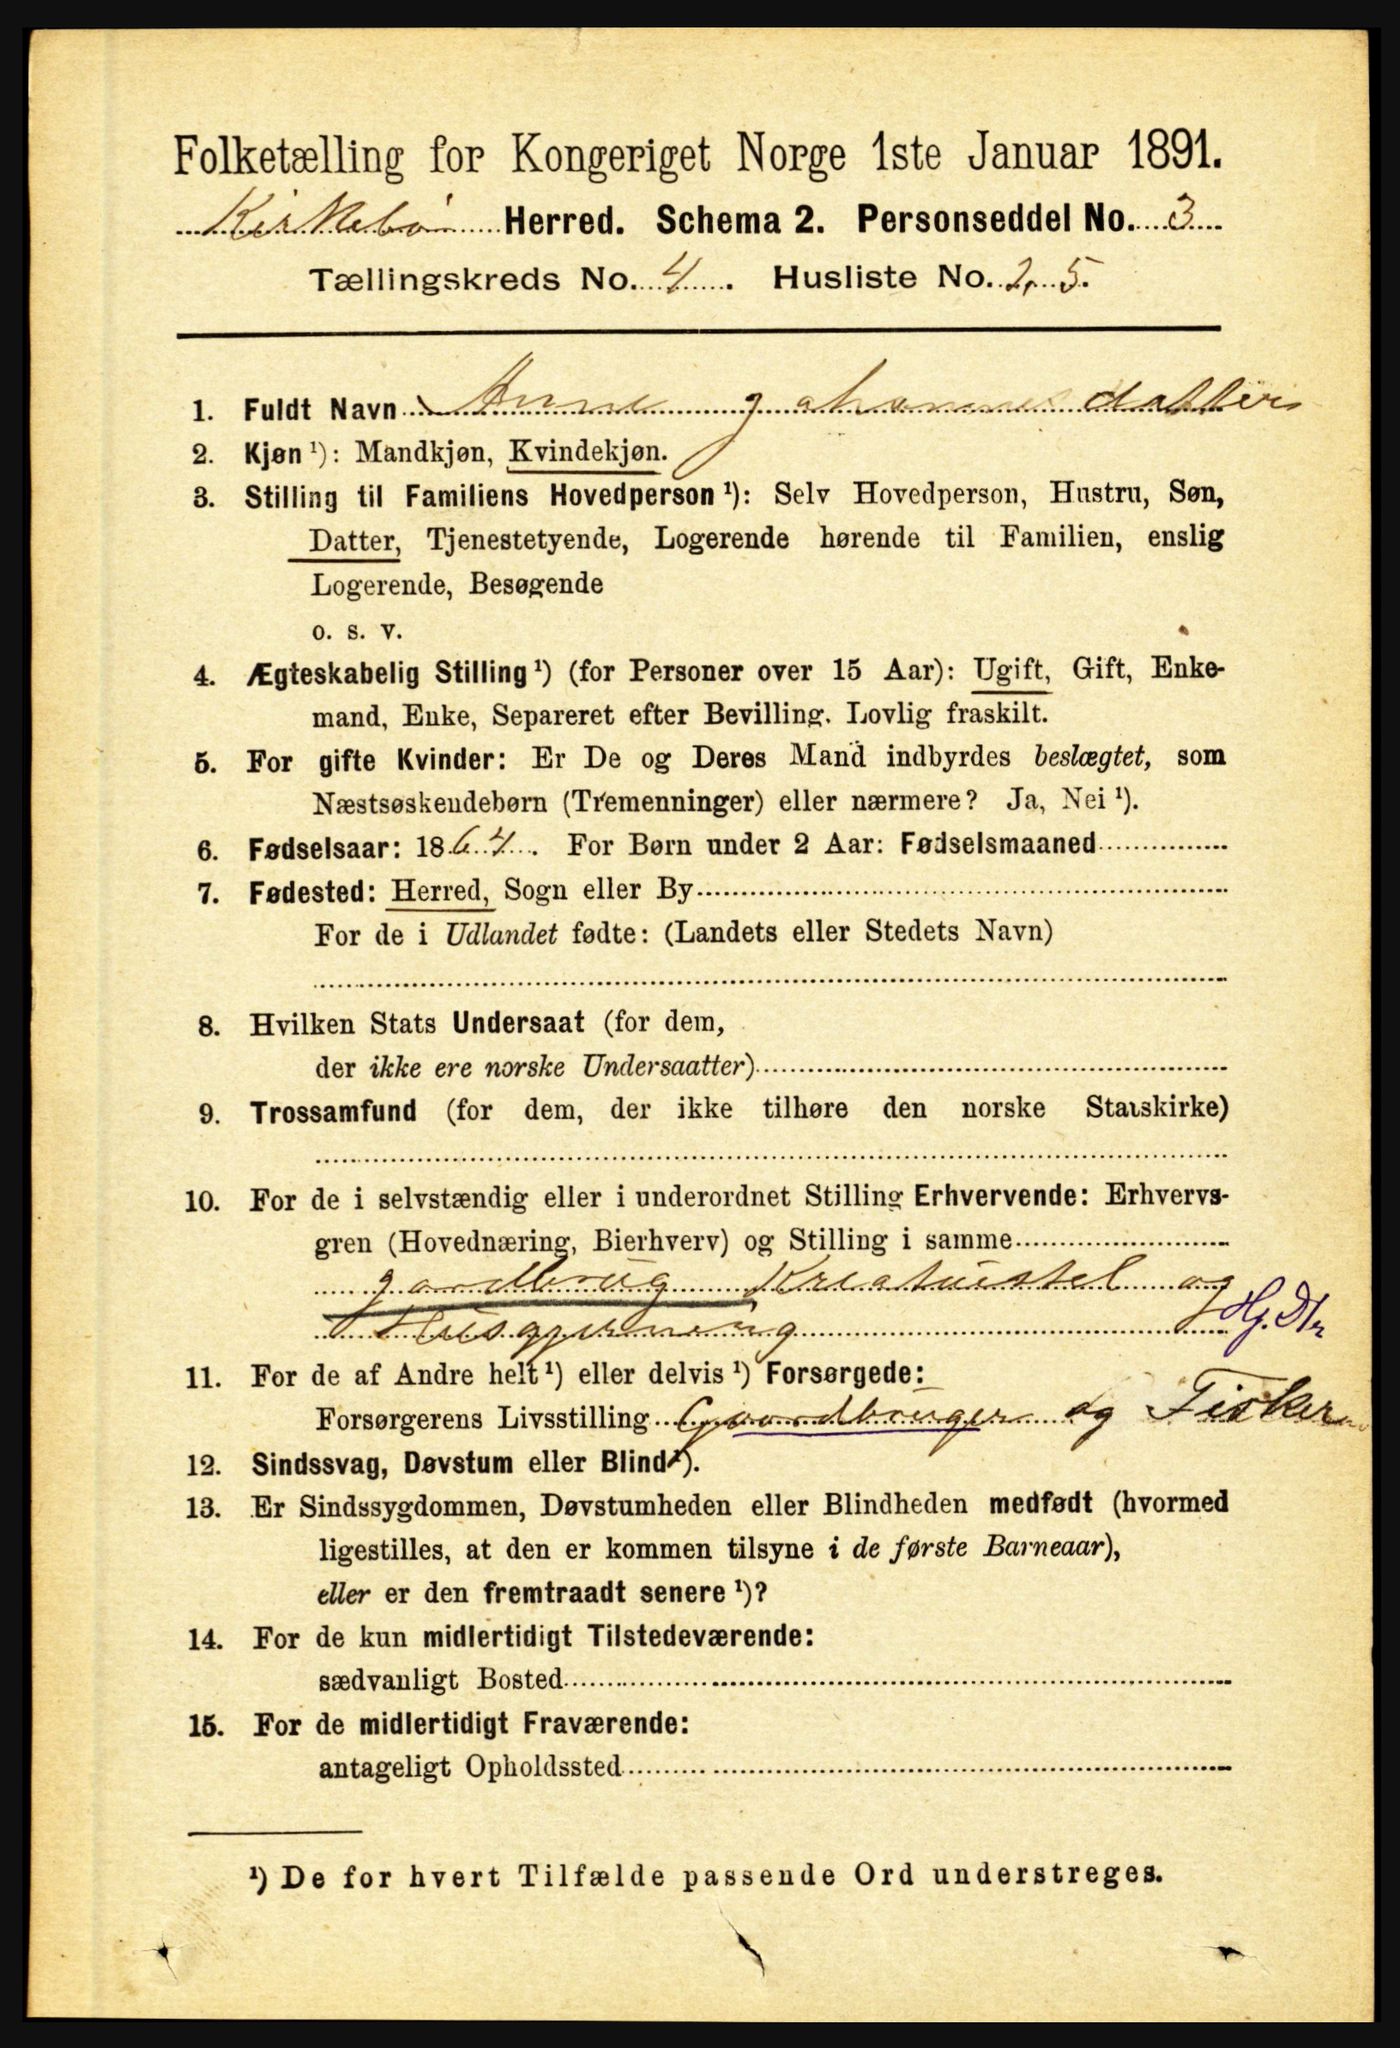 Folketælling for Kongeriget Norge 1ste Januar 1891.
Kirkebø Herred. Schema 2. Personseddel No. 3
Tællingskreds No. 4. Husliste No. 2, 5.
1. Fuldt Navn Anne Johannesdatter
2. Kjøn ¹): Mandkjøn, Kvindekjøn.
3. Stilling til Familiens Hovedperson ¹): Selv Hovedperson, Hustru, Søn,
Datter, Tjenestetyende, Logerende hørende til Familien, enslig
Logerende, Besøgende
o. s. v.
4. Ægteskabelig Stilling ¹) (for Personer over 15 Aar): Ugift, Gift, Enke-
mand, Enke, Separeret efter Bevilling. Lovlig fraskilt.
5. For gifte Kvinder: Er De og Deres Mand indbyrdes beslægtet, som
Næstsøskendebørn (Tremenninger) eller nærmere? Ja, Nei ¹).
6. Fødselsaar: 1864. For Børn under 2 Aar: Fødselsmaaned
7. Fødested: Herred, Sogn eller By
For de i Udlandet fødte: (Landets eller Stedets Navn)
8. Hvilken Stats Undersaat (for dem,
der ikke ere norske Undersaatter)
9. Trossamfund (for dem, der ikke tilhøre den norske Statskirke)
10. For de i selvstændig eller i underordnet Stilling Erhvervende: Erhvervs-
gren (Hovednæring, Bierhverv) og Stilling i samme
gardbrug Kreaturstel og
Husgjerning Hj. Dtr
11. For de af Andre helt ¹) eller delvis ¹) Forsørgede:
Forsørgerens Livsstilling Gaardbruger og Fisker
12. Sindssvag, Døvstum eller Blind ¹).
13. Er Sindssygdommen, Døvstumheden eller Blindheden medfødt (hvormed
ligestilles, at den er kommen tilsyne i de første Barneaar),
eller er den fremtraadt senere ¹)?
14. For de kun midlertidigt Tilstedeværende:
sædvanligt Bosted
15. For de midlertidigt Fraværende:
antageligt Opholdssted
¹) De for hvert Tilfælde passende Ord understreges.